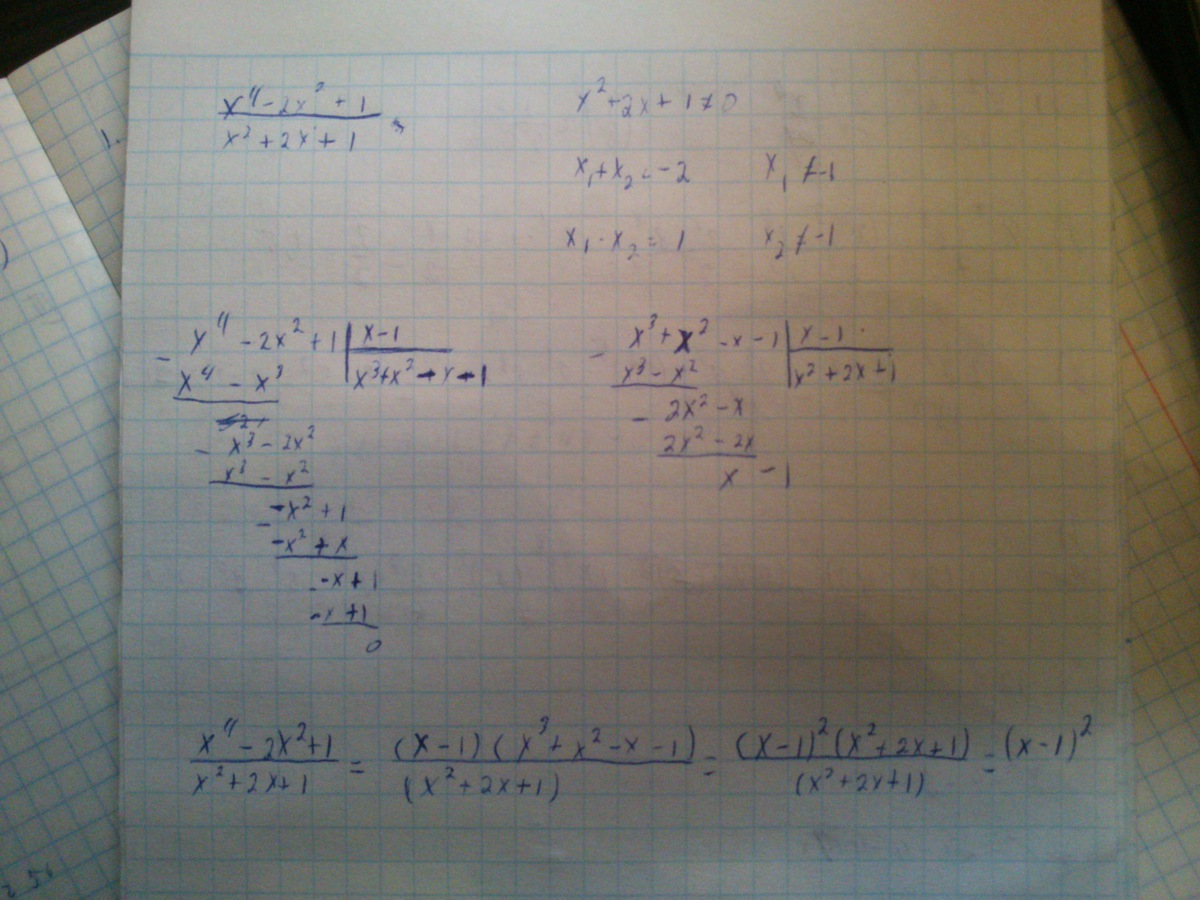 1.
x⁴ - 2x² + 1 / x² + 2x + 1 =
x² + 2x + 1 ≠ 0
x₁ + x₂ = -2    x₁ ≠ -1
x₁ · x₂ = 1    x₂ ≠ -1
x⁴ - 2x² + 1 | x - 1
- x⁴ - x³ | x³ + x² - x - 1
- x³ - 2x²
x³ - x²
- -x² + 1
-x² + x
-x + 1
-x + 1
0
x³ + x² - x - 1 | x - 1
- x³ - x² | x² + 2x + 1
- 2x² - x
2x² - 2x
x - 1
x⁴ - 2x² + 1 / x² + 2x + 1 = (x - 1)(x³ + x² - x - 1) / (x² + 2x + 1) = (x - 1)²(x² + 2x + 1) / (x² + 2x + 1) = (x - 1)²